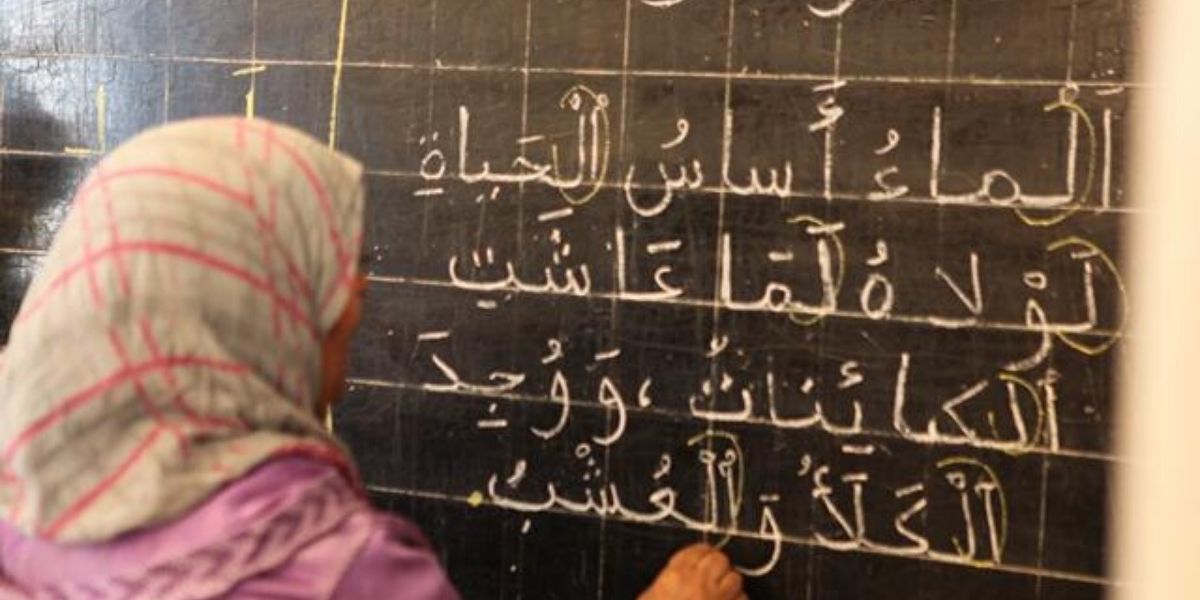 اَلْماءُ أَساسُ الْحَياةِ
لَوْلاهُ لَمَا عَاشَتِ
اَلْكائِناتُ، وَوُجِدَ
اَلْكَلَأُ وَالْعُشْبُ.